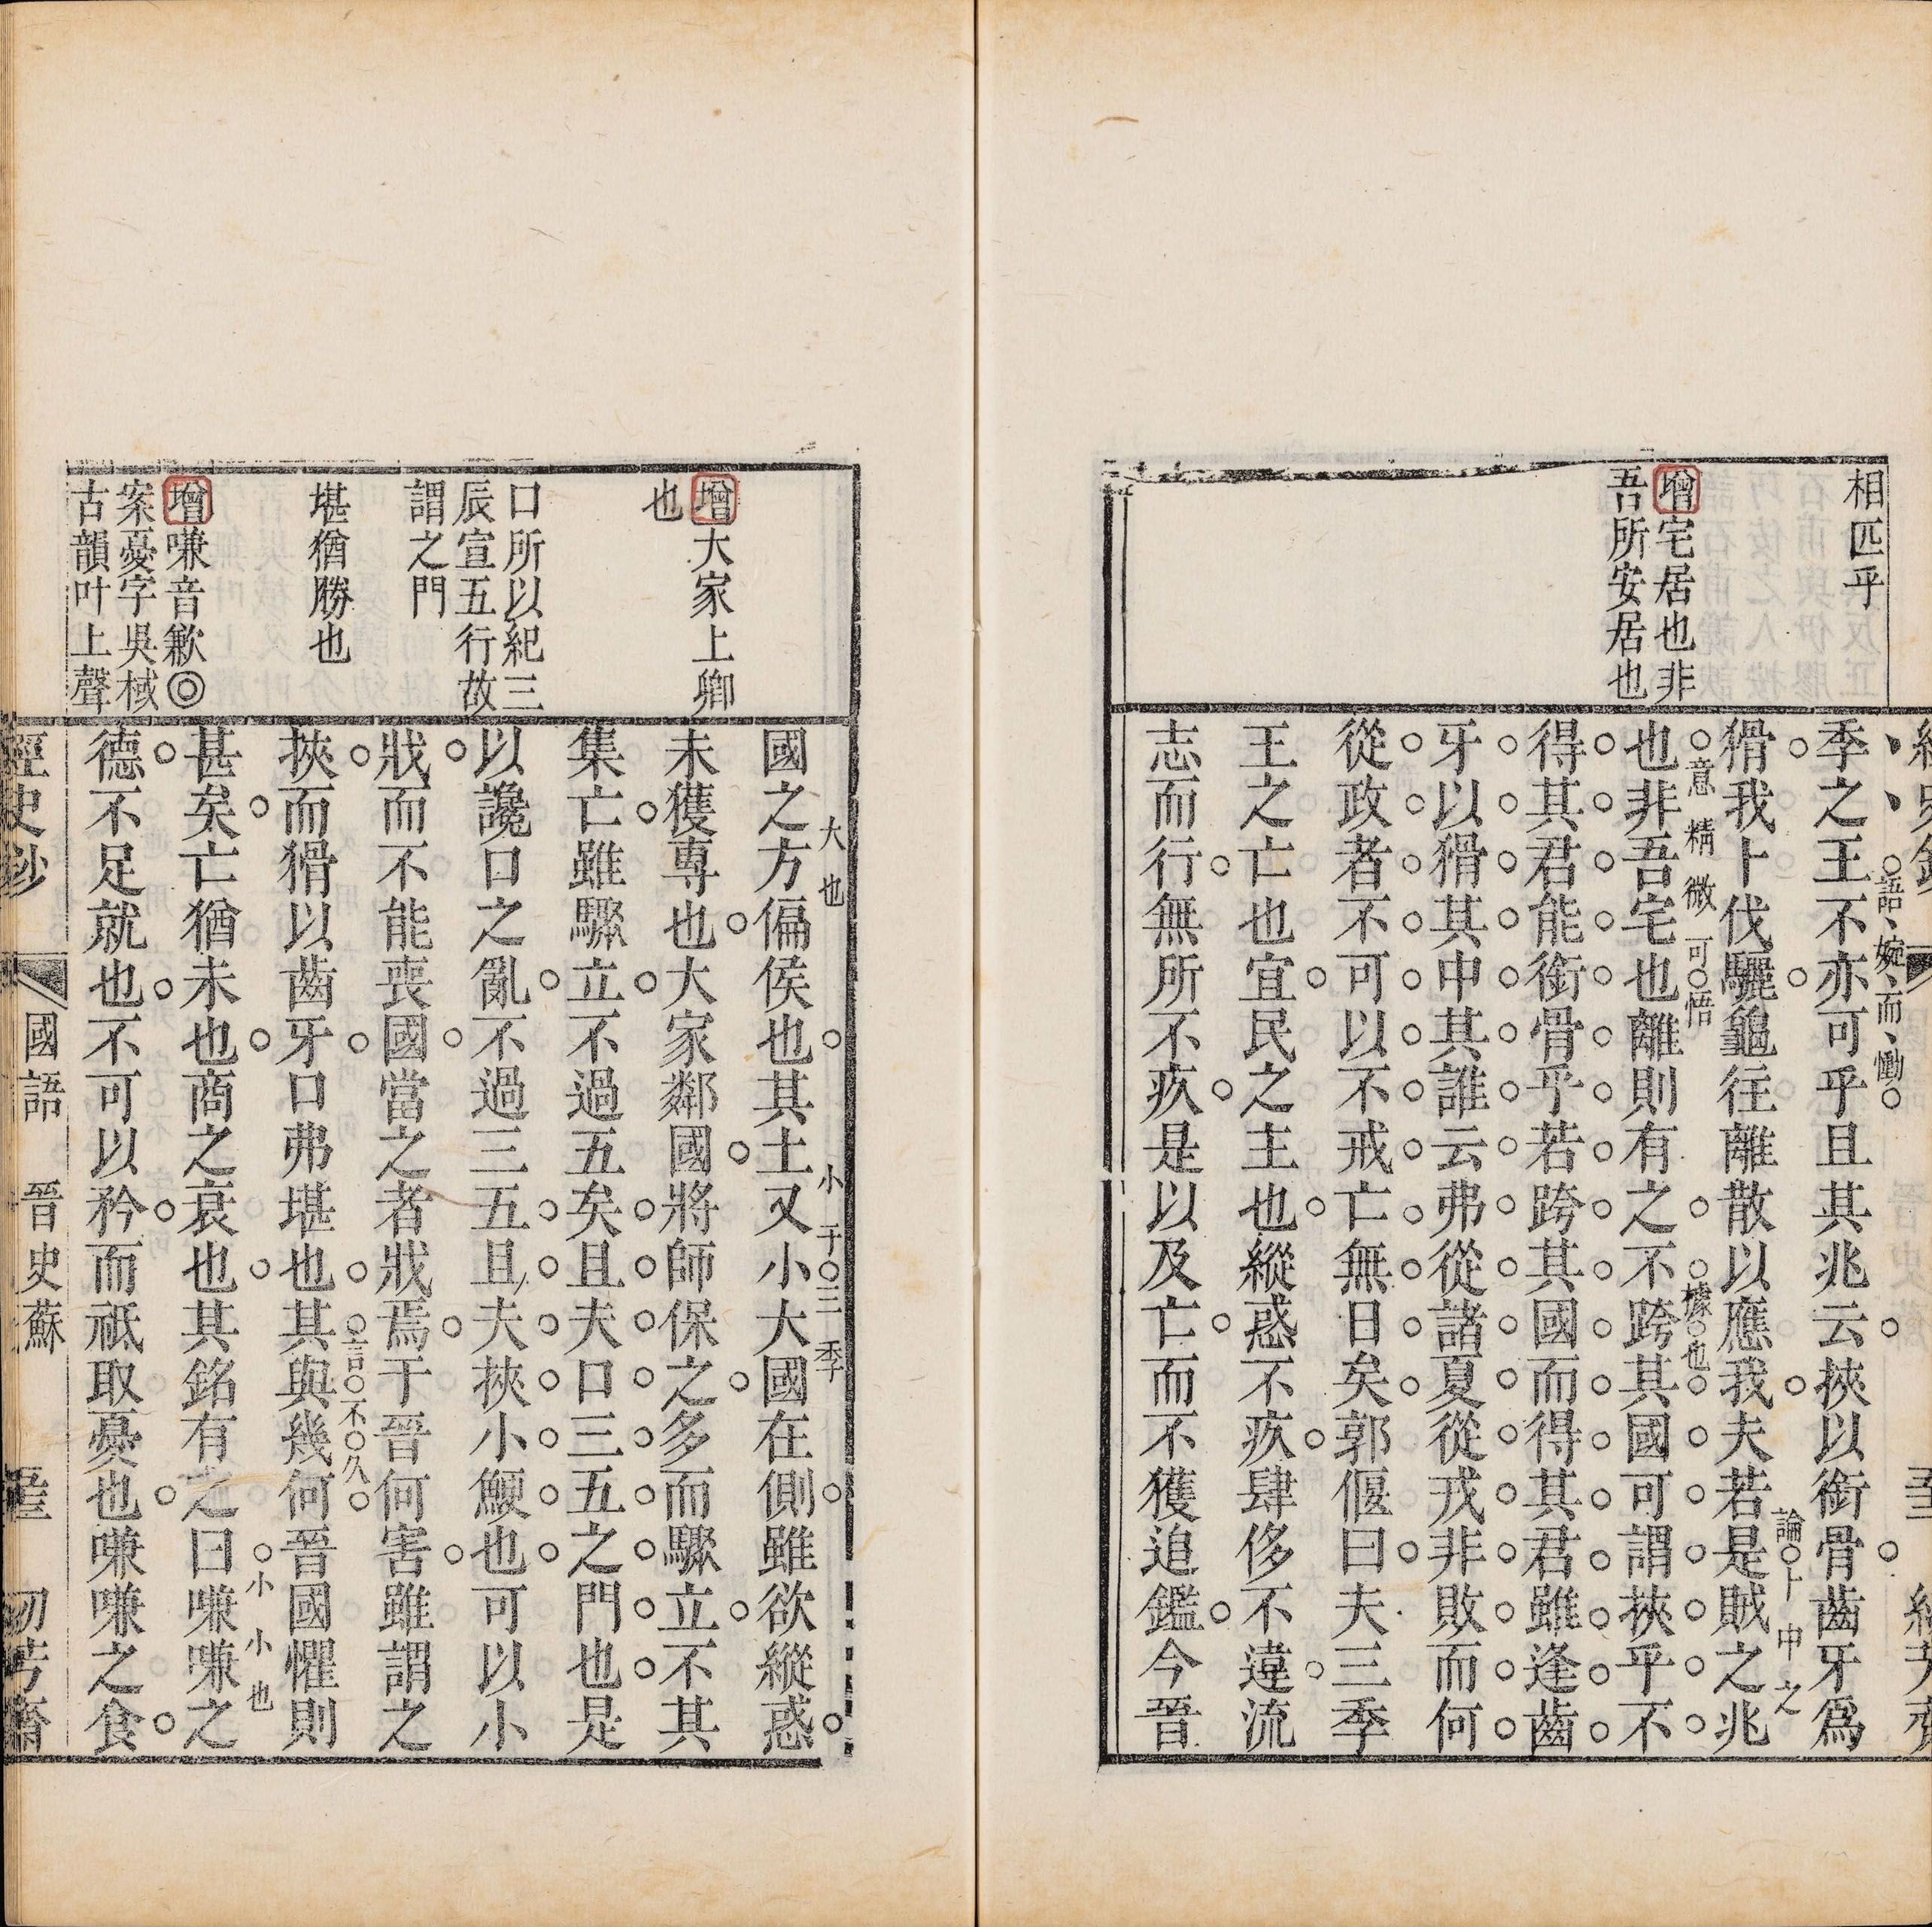 相匹乎
增宅居也非
吾所安居也
季之王不亦可乎且其兆云挾以銜骨齒牙爲
語婉而慟
猾我卜伐驪龜往離散以應我夫若是賊之兆
論卜中之
也非吾宅也離則有之不跨其國可謂挾乎不
意精微可悟
據也
得其君能銜骨乎若跨其國而得其君雖逢齒
牙以猾其中其誰云弗從諸夏從戎非敗而何
從政者不可以不戒亡無日矣郭偃曰夫三季
王之亡也宜民之主也縱惑不疚肆侈不違流
志而行無所不疚是以及亡而不獲追鑑今晉
增大家上卿
也
口所以紀三
辰宣五行故
謂之門
堪猶勝也
增嗛音歉◎
案憂字吳棫
古韻叶上聲
國之方偏侯也其土又小大國在側雖欲縱惑
大也
小于三季
未獲専也大家鄰國將師保之多而驟立不其
集亡雖驟立不過五矣且夫口三五之門也是
以讒口之亂不過三五且夫挾小鯁也可以小
戕而不能喪國當之者戕焉于晉何害雖謂之
挾而猾以齒牙口弗堪也其與幾何晉國懼則
言不久
甚矣亡猶未也商之衰也其銘有之曰嗛嗛之
小小也
德不足就也不可以矜而祗取憂也嗛嗛之食
經史鈔 國語 晉史蘇